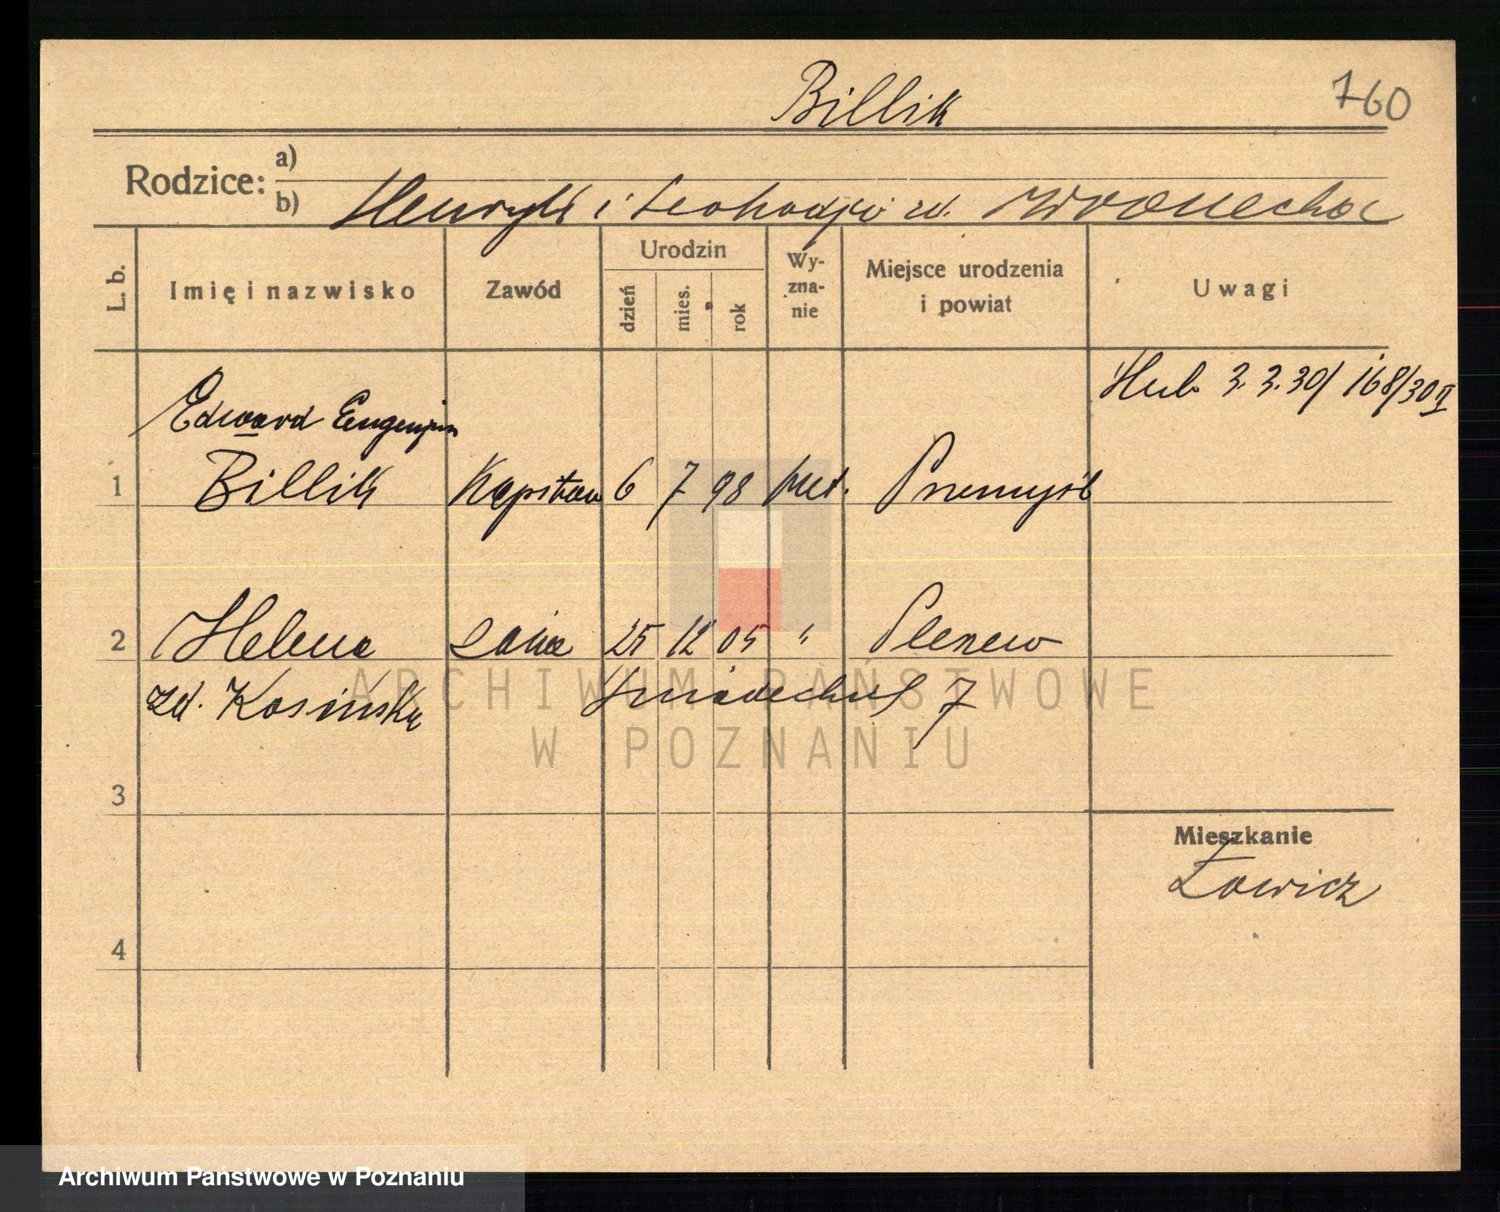 Billik 760
Rodzice: a)
b) Henryk i zd.
L. b. Imię i nazwisko Zawód Urodzin dzień mies. rok Wy-zna-nie Miejsce urodzenia i powiat Uwagi
3. 3. 30/ 168/30 II
Edward Eugenjusz
1 Billik Kapitan 6 7 98 Przemyśl
2 Helena żona 25 12 05 " Pleszew
zd. Kosińska Śniadeckich 7
ARCHIWUM PAŃSTWOWE
W POZNANIU
3
Mieszkanie
Łowicz
4
Archiwum Państwowe w Poznaniu